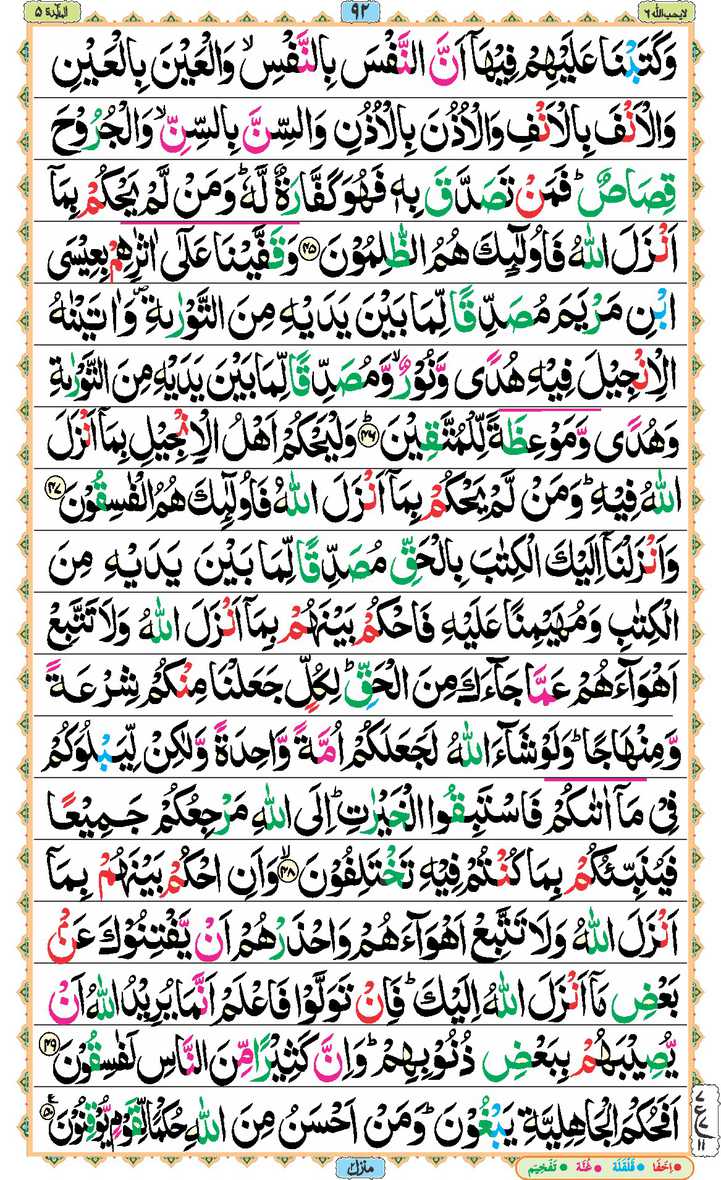 لایحب اللہ ٦ ٩٢ المآئدة ٥
وَكَتَبْنَا عَلَيْهِمْ فِيْهَاۤ اَنَّ النَّفْسَ بِالنَّفْسِ ۙ وَالْعَيْنَ بِالْعَيْنِ
وَالْاَنْفَ بِالْاَنْفِ وَالْاُذُنَ بِالْاُذُنِ وَالسِّنَّ بِالسِّنِّ ۙ وَالْجُرُوْحَ
قِصَاصٌ ؕ فَمَنْ تَصَدَّقَ بِهٖ فَهُوَ كَفَّارَةٌ لَّهٗ ؕ وَمَنْ لَّمْ يَحْكُمْ بِمَاۤ
اَنْزَلَ اللّٰهُ فَاُولٰٓئِكَ هُمُ الظّٰلِمُوْنَ ﴿۴۵﴾ وَقَفَّيْنَا عَلٰۤى اٰثَارِهِمْ بِعِيْسَى
ابْنِ مَرْيَمَ مُصَدِّقًا لِّمَا بَيْنَ يَدَيْهِ مِنَ التَّوْرٰىةِ ۪ وَاٰتَيْنٰهُ
الْاِنْجِيْلَ فِيْهِ هُدًى وَّنُوْرٌ ۙ وَّمُصَدِّقًا لِّمَا بَيْنَ يَدَيْهِ مِنَ التَّوْرٰىةِ
وَهُدًى وَّمَوْعِظَةً لِّلْمُتَّقِيْنَ ؕ﴿۴۶﴾ وَلْيَحْكُمْ اَهْلُ الْاِنْجِيْلِ بِمَاۤ اَنْزَلَ
اللّٰهُ فِيْهِ ؕ وَمَنْ لَّمْ يَحْكُمْ بِمَاۤ اَنْزَلَ اللّٰهُ فَاُولٰٓئِكَ هُمُ الْفٰسِقُوْنَ ﴿۴۷﴾
وَاَنْزَلْنَاۤ اِلَيْكَ الْكِتٰبَ بِالْحَقِّ مُصَدِّقًا لِّمَا بَيْنَ يَدَيْهِ مِنَ
الْكِتٰبِ وَمُهَيْمِنًا عَلَيْهِ فَاحْكُمْ بَيْنَهُمْ بِمَاۤ اَنْزَلَ اللّٰهُ وَلَا تَتَّبِعْ
اَهْوَآءَهُمْ عَمَّا جَآءَكَ مِنَ الْحَقِّ ؕ لِكُلٍّ جَعَلْنَا مِنْكُمْ شِرْعَةً
وَّمِنْهَاجًا ؕ وَلَوْ شَآءَ اللّٰهُ لَجَعَلَكُمْ اُمَّةً وَّاحِدَةً وَّلٰكِنْ لِّيَبْلُوَكُمْ
فِيْ مَاۤ اٰتٰىكُمْ فَاسْتَبِقُوا الْخَيْرٰتِ ؕ اِلَى اللّٰهِ مَرْجِعُكُمْ جَمِيْعًا
فَيُنَبِّئُكُمْ بِمَا كُنْتُمْ فِيْهِ تَخْتَلِفُوْنَ ۙ﴿۴۸﴾ وَاَنِ احْكُمْ بَيْنَهُمْ بِمَاۤ
اَنْزَلَ اللّٰهُ وَلَا تَتَّبِعْ اَهْوَآءَهُمْ وَاحْذَرْهُمْ اَنْ يَّفْتِنُوْكَ عَنْۢ
بَعْضِ مَاۤ اَنْزَلَ اللّٰهُ اِلَيْكَ ؕ فَاِنْ تَوَلَّوْا فَاعْلَمْ اَنَّمَا يُرِيْدُ اللّٰهُ اَنْ
يُّصِيْبَهُمْ بِبَعْضِ ذُنُوْبِهِمْ ؕ وَاِنَّ كَثِيْرًا مِّنَ النَّاسِ لَفٰسِقُوْنَ ﴿۴۹﴾
اَفَحُكْمَ الْجَاهِلِيَّةِ يَبْغُوْنَ ؕ وَمَنْ اَحْسَنُ مِنَ اللّٰهِ حُكْمًا لِّقَوْمٍ يُّوْقِنُوْنَ ﴿۵۰﴾
منزل ٢
اِخفَا قَلقَلَه غُنَّه تَفخِيم